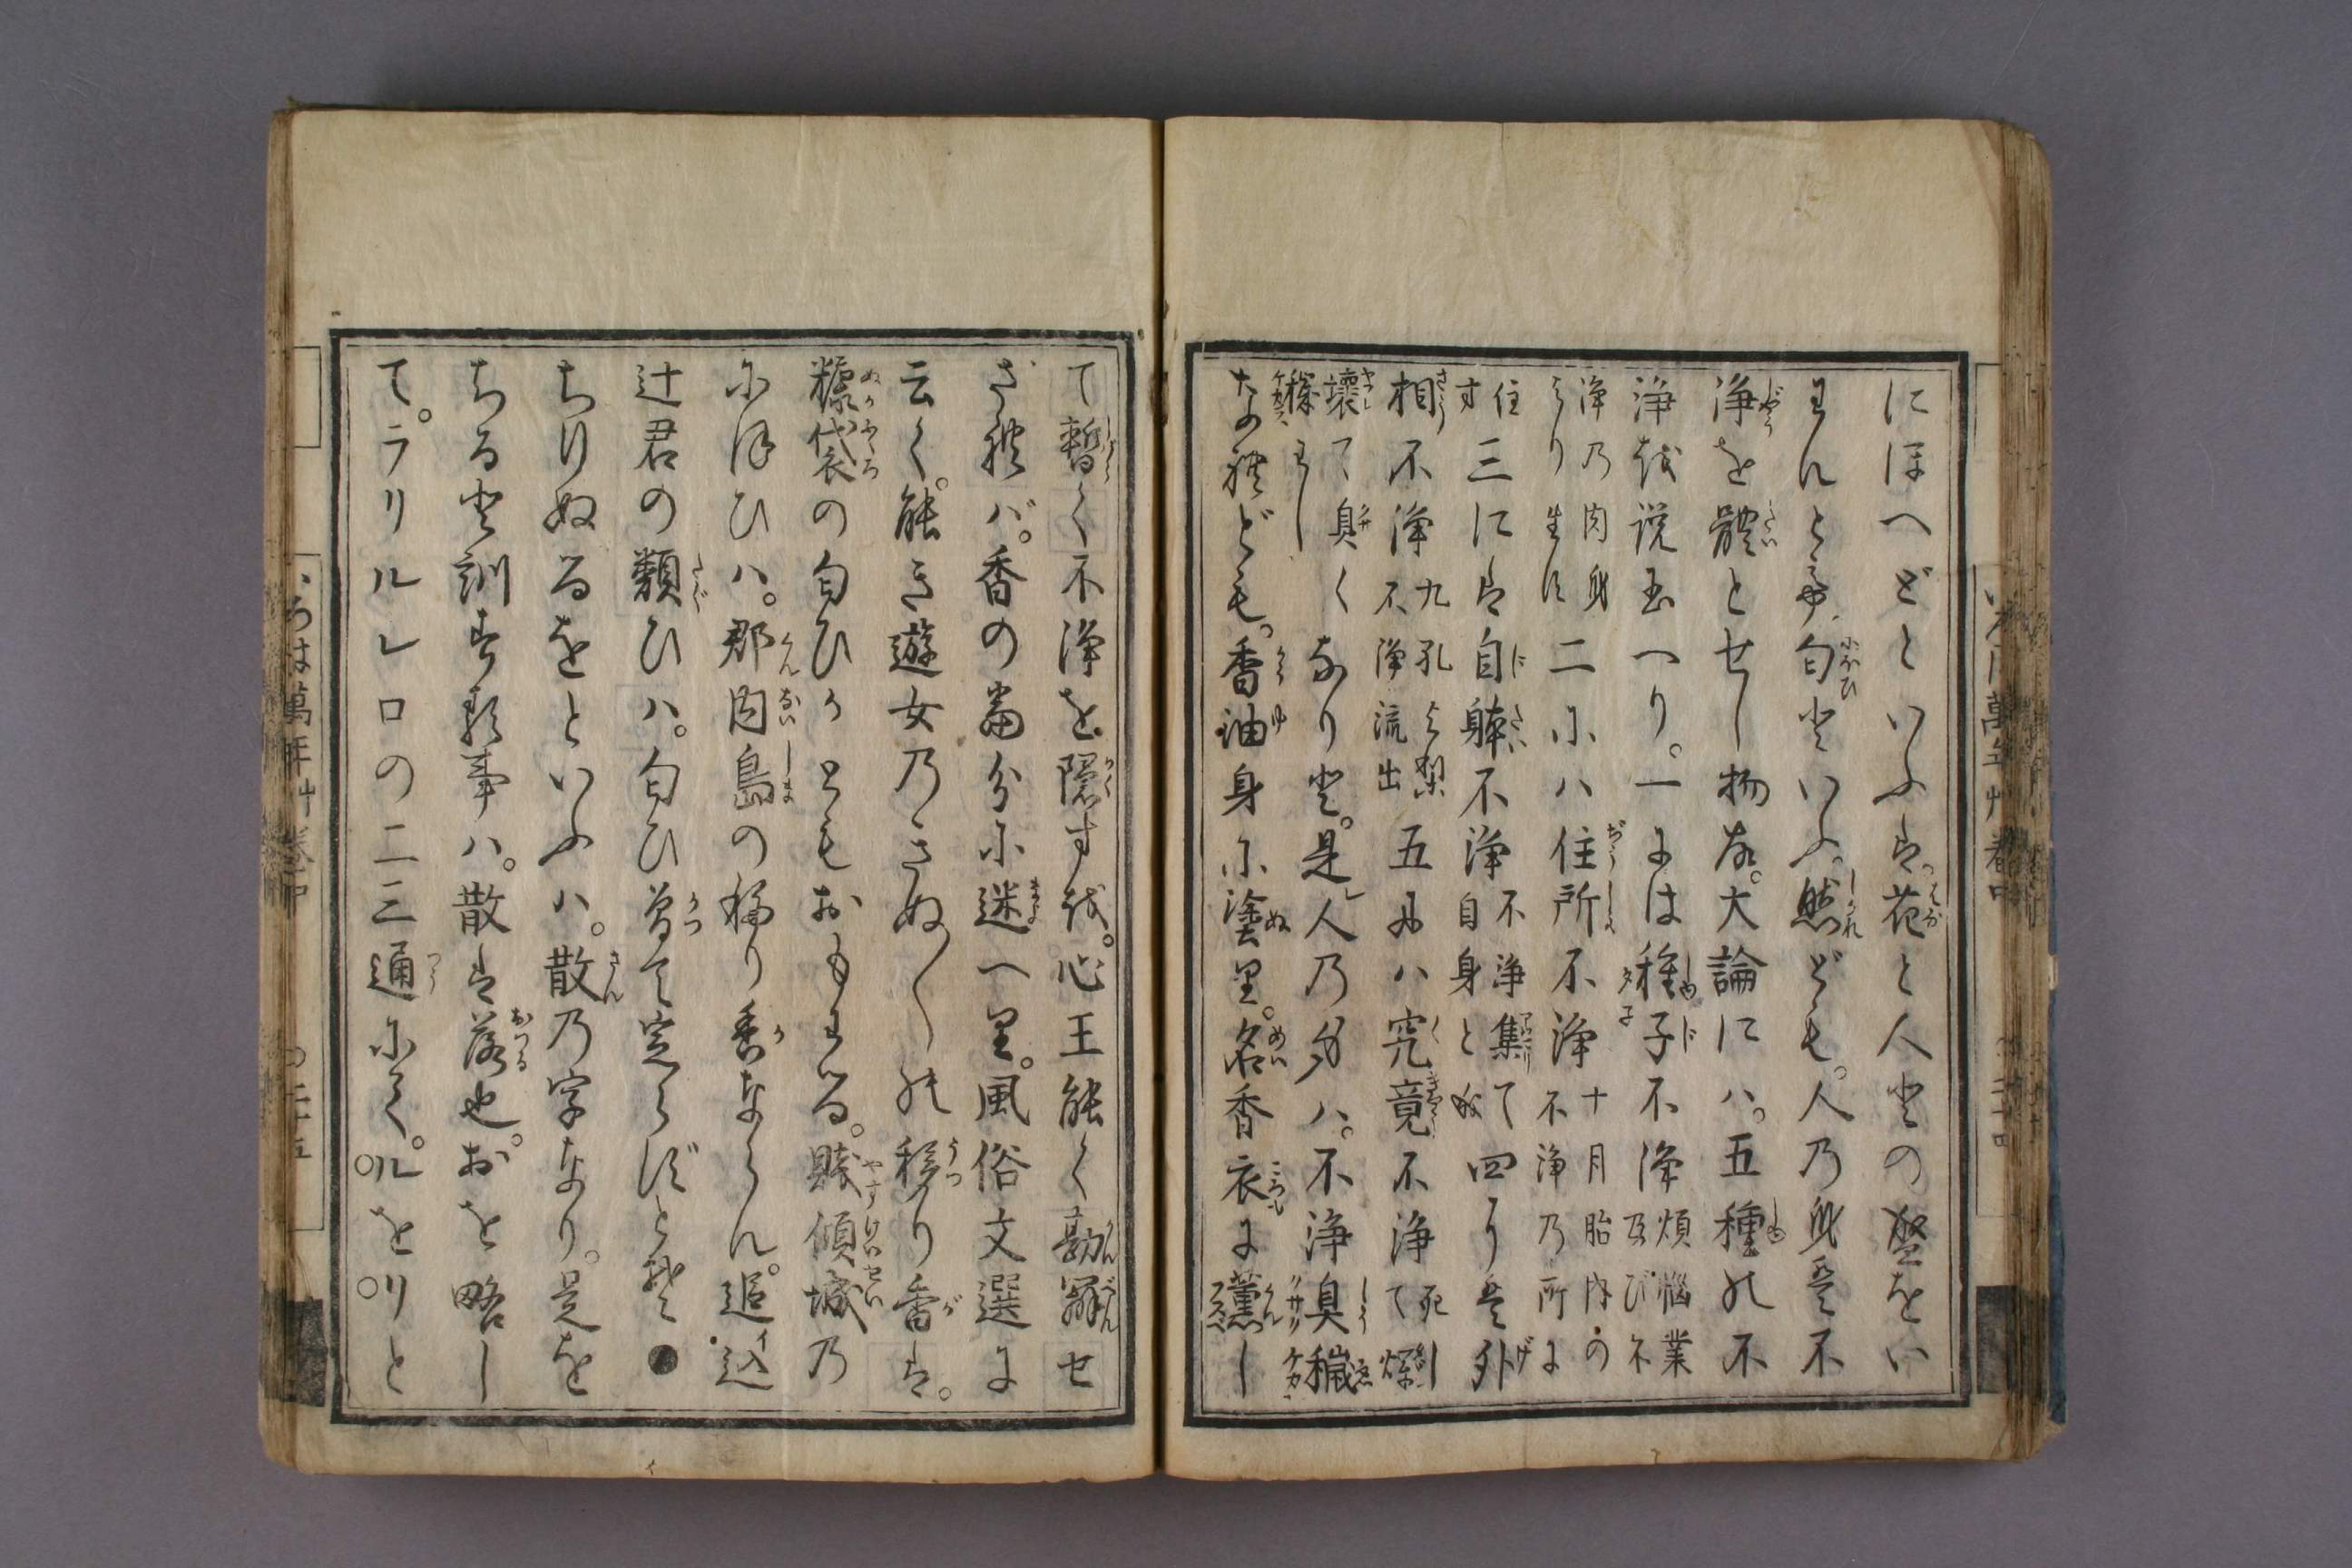 にほへどといふは花と人との盛をい
はんとて。匂といふ。然れども。人乃身は不
浄を體とせし物故。大論にハ。五種の不
浄を説玉へり。一には種子不浄煩悩業及び不
浄乃肉身より生ず二にハ住所不浄十月胎内の不浄乃所に
住す三には自躰不浄不浄集て自身と成四には外
相不浄九孔より不浄流出五にハ究竟不浄死して爛
壊て臭くなりと。是人乃身ハ。不浄臭穢
穢はし
なれども。香油身に塗り。名香衣に薫し
て暫く不浄を隠すを。心王能く勘辨せ
ざれバ。香の當分に迷へり。風俗文選に
云く。能き遊女乃きぬ〱の移り香は。
糠袋の匂ひかともおもはる。賎傾城乃
にほひハ。郡内島の移り香ならん。追込
辻君の類ひハ。匂ひ曽て定らずとぞ●
ちりぬるをといふハ。散乃字なり。是を
ちると訓する事ハ。散は落也。おを略し
て。ラリルレロの二三通にて。ルをリと